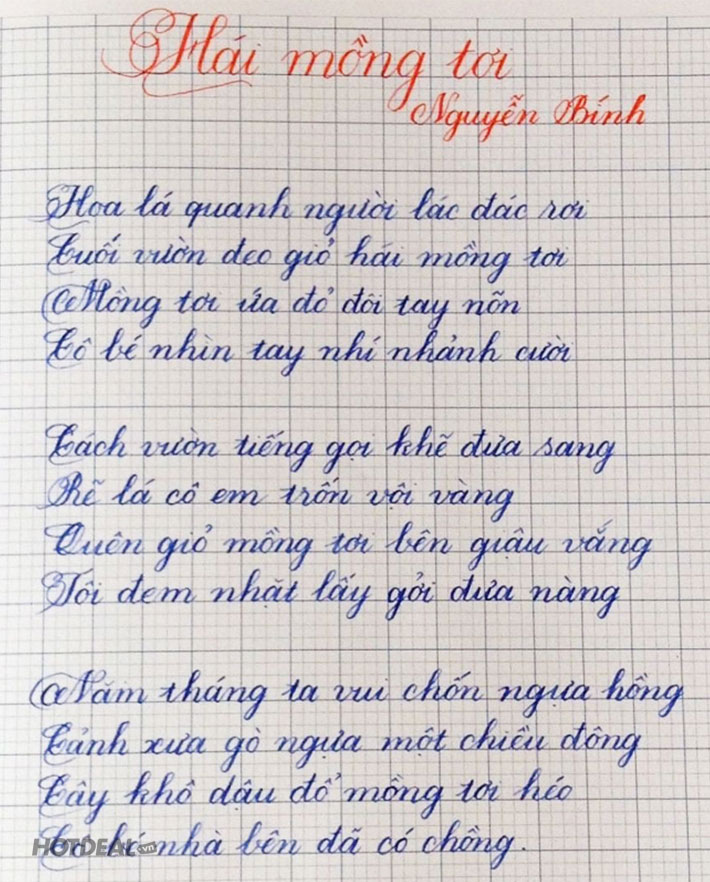 Hái mồng tơi
Nguyễn Bính
Hoa lá quanh người lác đác rơi
Cuối vườn đeo giỏ hái mồng tơi
Mồng tơi ứa đỏ đôi tay nõn
Cô bé nhìn tay nhí nhảnh cười
Cách vườn tiếng gọi khẽ đưa sang
Rẽ lá cô em trốn vội vàng
Quên giỏ mồng tơi bên giậu vắng
Tôi đem nhặt lấy gởi đưa nàng
Năm tháng ta vui chốn ngựa hồng
Cảnh xưa gò ngựa một chiều đông
Cây khô dậu đổ mồng tơi héo
Cô bé nhà bên đã có chồng.
HOTDEAL.vn